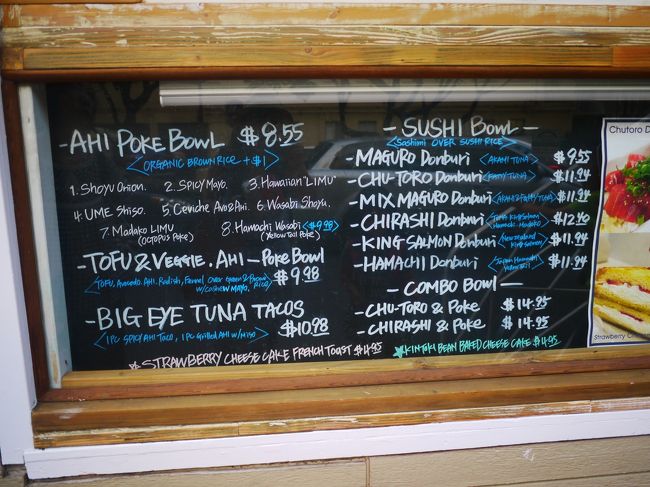 -AHI POKE BOWL $8.55
<ORGANIC BROWN RICE + $1>
1. Shoyu Onion. 2. SPICY Mayo. 3. Hawaiian "LIMU"
4. UME Shiso. 5. Ceviche Avo& 6. Wasabi Shoyu.
7. Madako LIMU 8. Hamachi Wasabi <$9.98>
(OCTOPUS POKE) (Yellow Tail POKE)
-TOFU & VEGGIE. AHI - POKE BOWL
<TOFU, Avocado. AHI. Radish, Fennel Over green & Brown Rice> $9.98
w/cashew MAYO.
-BIG EYE TUNA TACOS
<1PC SPICY AHI TACO, 1PC Grilled AHI w/MISO> $10.98
STRAWBERRY CHEESE CAKE FRENCH TOAST $14.95
- SUSHI BOWL -
<Sashimi OVER SUSHI RICE>
-MAGURO Donburi <AKAMI TUNA> $9.55
-CHU-TORO Donburi <FATTY TUNA> $11.94
-MIX MAGURO Donburi <AKAMI & FATTY TUNA> $11.94
-CHIRASHI Donburi <Tuna King Salmon Hamachi Madako> $12.40
-KING SALMON Donburi <New Zealand King Salmon> $11.94
-HAMACHI Donburi <Japan Hamachi Yellow tail> $11.94
- COMBO BOWL -
-CHU-TORO & POKE $14.95
-CHIRASHI & POKE $14.95
KINTOKI BEAN BAKED CHEESE CAKE $4.95
Chutoro D
Strawberry C